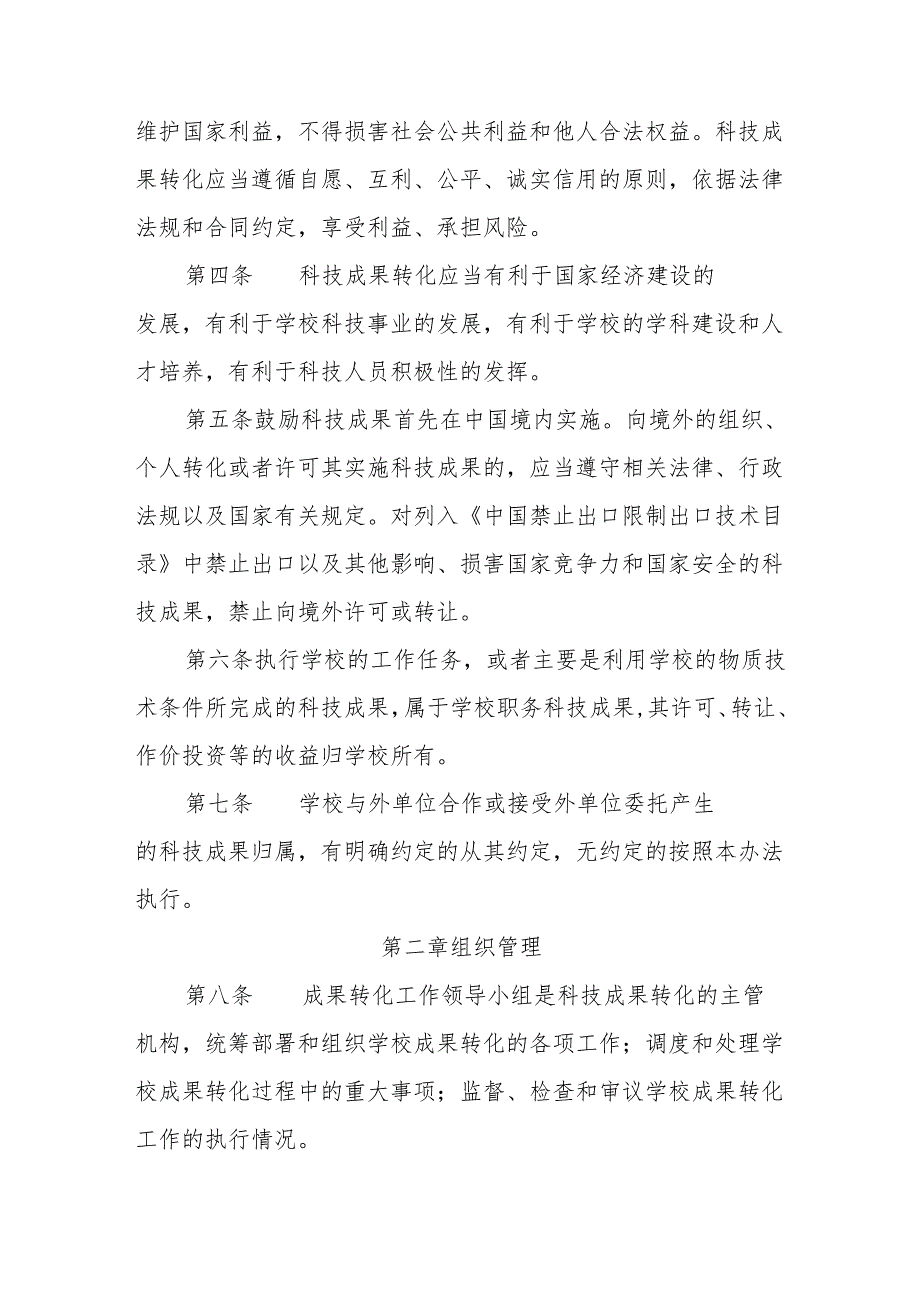 维护国家利益，不得损害社会公共利益和他人合法权益。科技成
果转化应当遵循自愿、互利、公平、诚实信用的原则，依据法律
法规和合同约定，享受利益、承担风险。
第四条　　科技成果转化应当有利于国家经济建设的
发展，有利于学校科技事业的发展，有利于学校的学科建设和人
才培养，有利于科技人员积极性的发挥。
第五条鼓励科技成果首先在中国境内实施。向境外的组织、
个人转化或者许可其实施科技成果的，应当遵守相关法律、行政
法规以及国家有关规定。对列入《中国禁止出口限制出口技术目
录》中禁止出口以及其他影响、损害国家竞争力和国家安全的科
技成果，禁止向境外许可或转让。
第六条执行学校的工作任务，或者主要是利用学校的物质技
术条件所完成的科技成果，属于学校职务科技成果,其许可、转让、
作价投资等的收益归学校所有。
第七条　　学校与外单位合作或接受外单位委托产生
的科技成果归属，有明确约定的从其约定，无约定的按照本办法
执行。
第二章组织管理
第八条　　成果转化工作领导小组是科技成果转化的主管
机构，统筹部署和组织学校成果转化的各项工作；调度和处理学
校成果转化过程中的重大事项；监督、检查和审议学校成果转化
工作的执行情况。